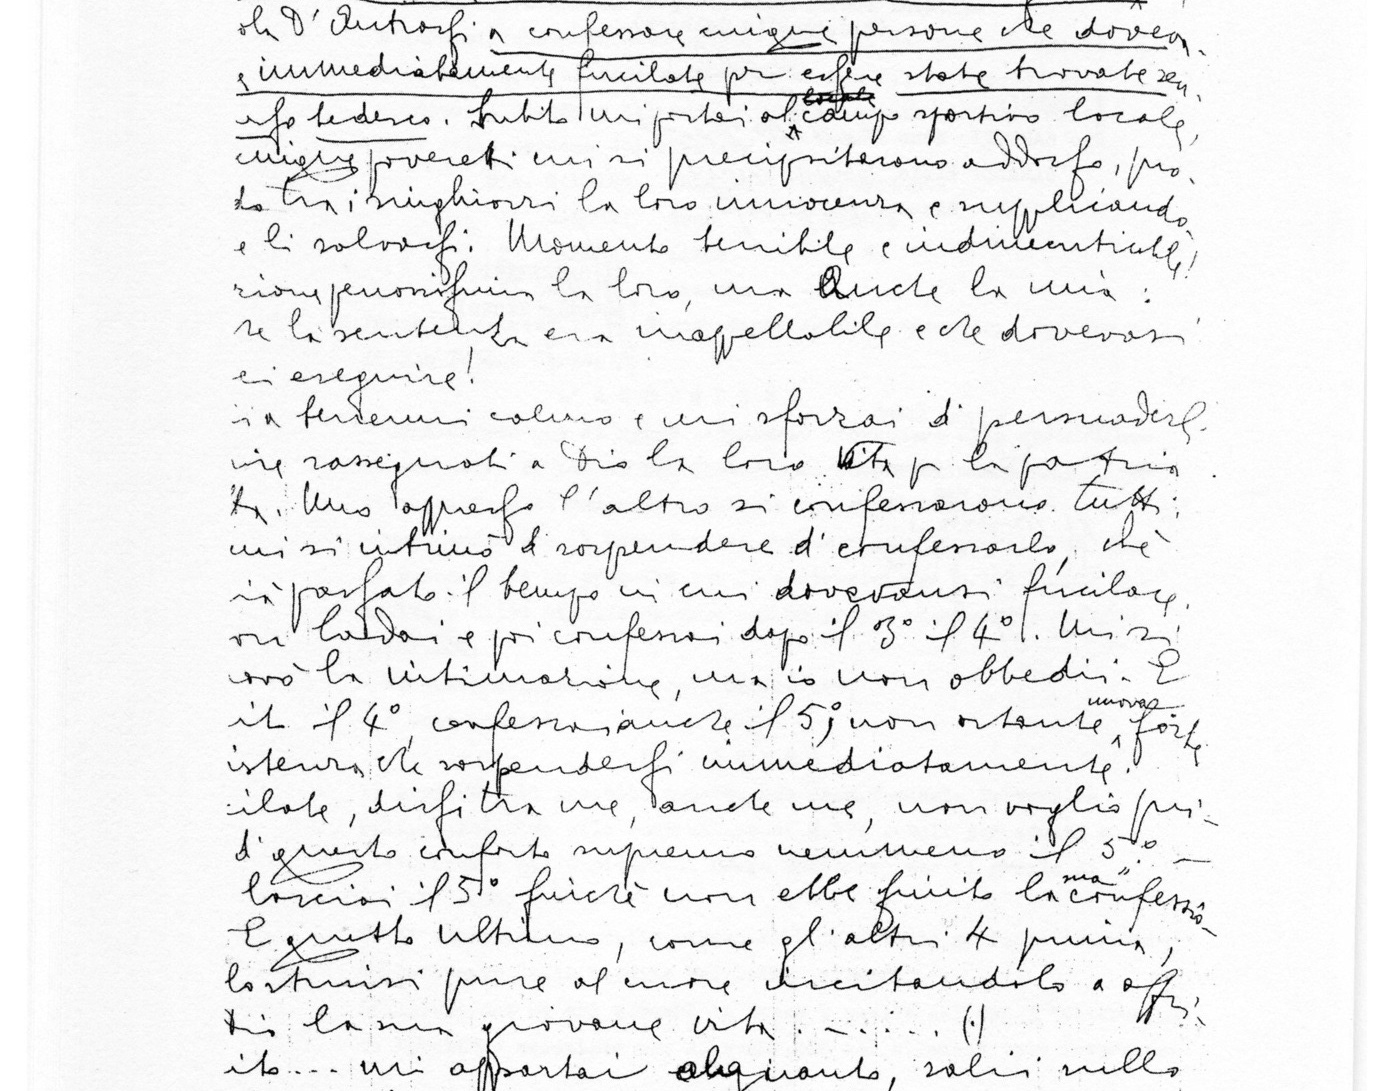 ola D'Antrassi a confessare cinque persone che doveva-
e immediatamente fucilate per essere state trovate sen-
rsso tedesco. Subito mi portai al campo sportivo locale,
cinque poveretti mi si precipitarono addosso, pro-
do tra i singhiozzi la loro innocenza e supplicando
e li salvassi. Momento terribile e indimenticabile!
zione penosissima la loro, ma anche la mia:
re la sentenza era inappellabile e che dovevasi
ci eseguire!
ia tenermi calmo e mi sforzai di persuaderl-
ire rassegnati a Dio la loro vita p la patria
ta. Uno appresso l'altro si confessarono tutti:
mi si intimò di sospendere di confessarlo, chè
ià passato il tempo in cui dovevansi fucilare.
on badai e poi confessai dopo il 3° il 4°. Mi si
ovò la intimazione, ma io non obbedii. E
it il 4°, confessai anche il 5°, non ostante nuova forte
istenza che sospendessi immediatamente.
ilate, dissi tra me, anche me, non voglio pri-
di questo conforto supremo nemmeno il 5°. —
lasciai il 5° finchè non ebbe finito la sua confessio-
E questo ultimo, come gl'altri 4 prima,
lo strinsi pure al cuore incitandolo a offri-
Dio la sua giovane vita . . . . . . (.)
ito... mi appartai alquanto, salii sullo